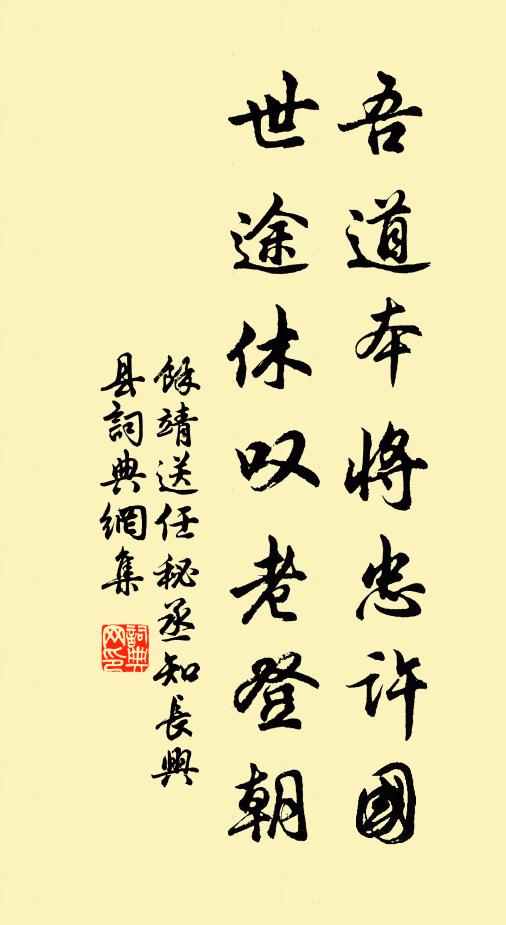 吾道本将忠许國
世途休叹老登朝
餘靖送任秘丞知長興
县詞典網集
詞典
网印